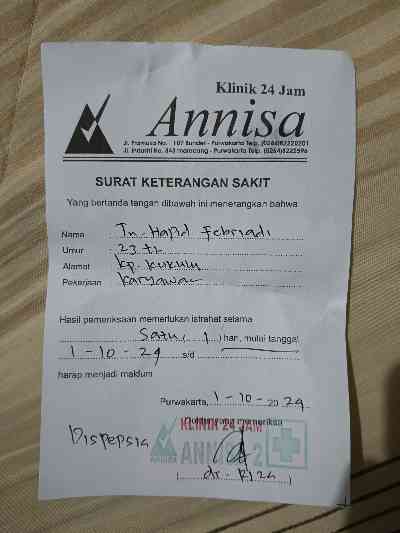 Klinik 24 Jam
Annisa
Jl. Pramuka No. 107 Bunder - Purwakarta Telp. (0264)8220201
Jl. Industri No. 843 maracang - Purwakarta Telp. (0264)8222596
SURAT KETERANGAN SAKIT
Yang bertanda tangan dibawah ini menerangkan bahwa
Nama Tn. Hapid Febriadi
Umur 23 th
Alamat kp. kukulu
Pekerjaan karyawan
Hasil pemeriksaan memerlukan istrahat selama
Satu ( 1 ) hari, mulai tanggal
1 - 10 - 24 s/d
harap menjadi maklum
Purwakarta, 1 - 10 - 2024
Dokter yang memeriksa
Dispepsia
KLINIK 24 JAM
ANNISA 2
( dr. Riza )